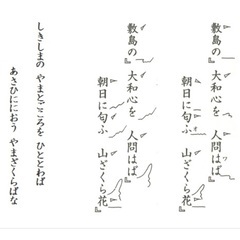 敷島の』大和心を 人問はば
朝日に匂ふ 山ざくら花』
敷島の』大和心を 人問はば
朝日に匂ふ 山ざくら花』
しきしまの やまとごころを ひととわば
あさひににおう やまざくらばな